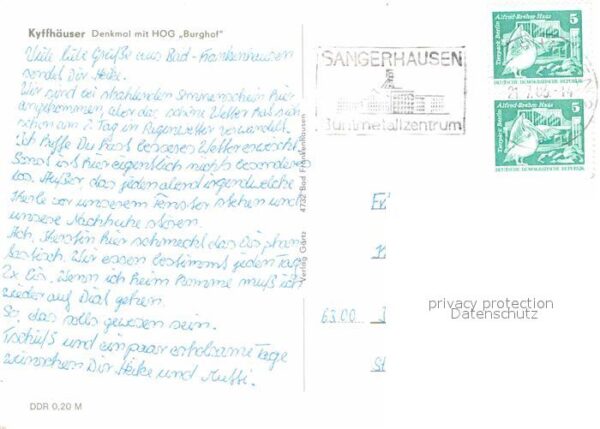 Kyffhäuser Denkmal mit HOG „Burghof"
Viele liebe Grüße aus Bad-Frankenhausen
sendet Dir Heike.
Wir sind bei strahlenden Sonnenschein hier
angekommen, aber das schöne Wetter hat sich
schon am 2. Tag in Regenwetter verwandelt.
Ich hoffe Du hast besseres Wetter erwischt.
Sonst ist hier eigentlich nichts besonderes
los. Außer das jeden abend irgendwelche
Kerle vor unserem Fenster stehen und
unsere Nachtruhe stören.
Ach, Kerstin hier schmeckt das Eis phan-
tastisch. Wir essen bestimmt jeden Tag
2x Eis. Wenn ich heim komme muß ich
wieder auf Diät gehen.
So, das solls gewesen sein.
Tschüß und ein paar erholsame Tage
wünschen Dir Heike und Mutti.
DDR 0,20 M
Verlag Görtz 4732 Bad Frankenhausen
SANGERHAUSEN
Buntmetallzentrum
Alfred-Brehm Haus 5
Tierpark Berlin
DEUTSCHE DEMOKRATISCHE REPUBLIK
Alfred-Brehm Haus 5
Tierpark Berlin
DEUTSCHE DEMOKRATISCHE REPUBLIK
6300
privacy protection
Datenschutz